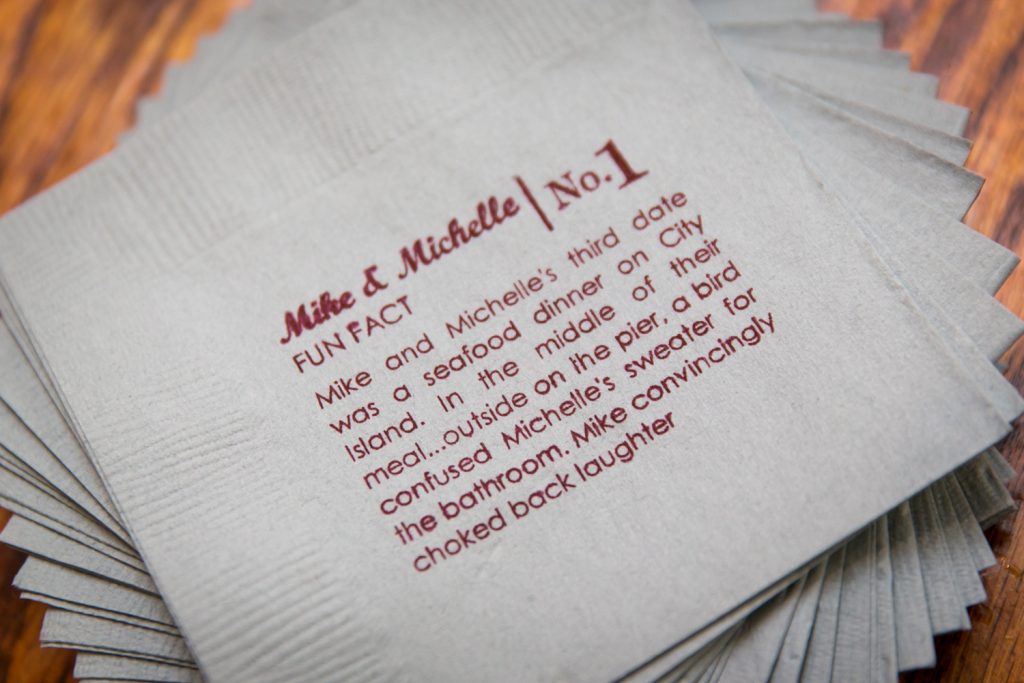 Mike & Michelle | No.1
FUN FACT
Mike and Michelle's third date
was a seafood dinner on City
Island. In the middle of their
meal...outside on the pier, a bird
confused Michelle's sweater for
the bathroom. Mike convincingly
choked back laughter